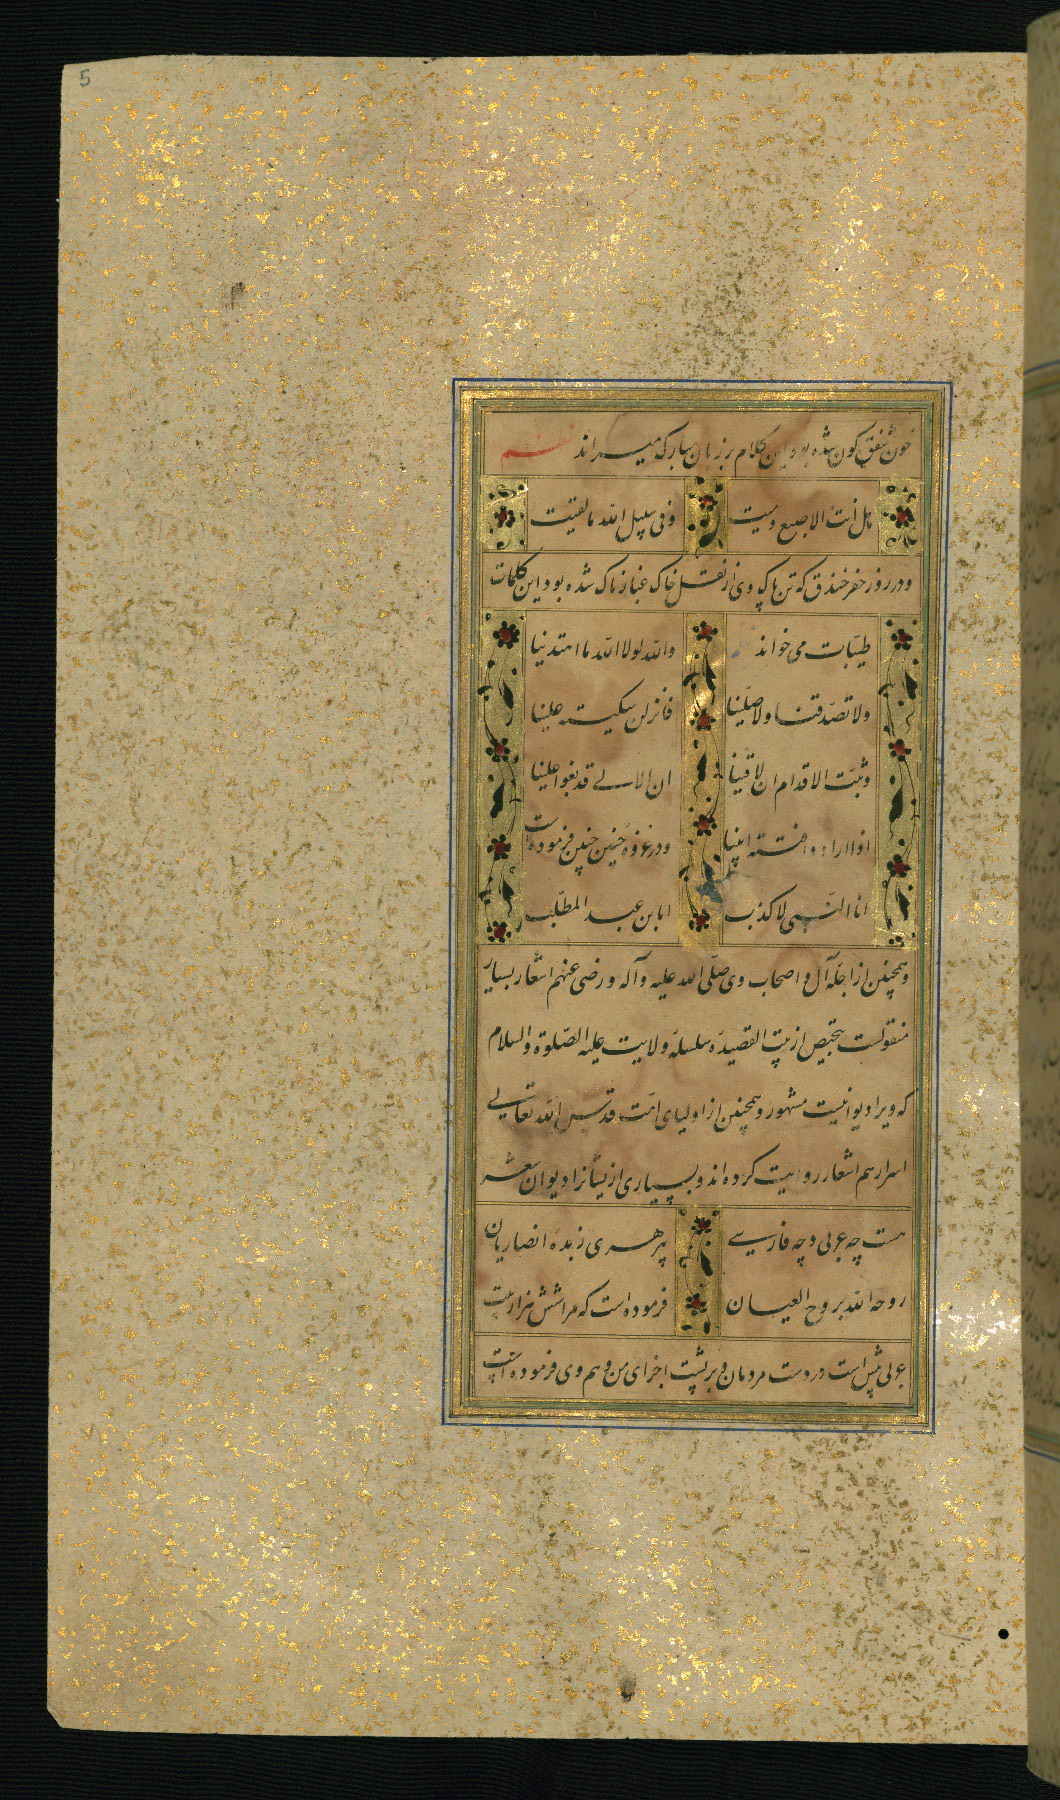 5
خون شفق کون شده بود این کلام بر زبان مبارک میراند نظم
ما انت الا اصبع دمیت وفی سبیل الله ما لقیت
و در روز حفر خندق که تن پاک وی از نقل خاک غبارناک شده بود این کلمات
طیبات می خواند والله لولا الله ما اهتدینا
ولا تصدقنا ولا صلینا فانزلن سکینة علینا
وثبت الاقدام ان لاقینا ان الالی قد بغوا علینا
اذا ارادوا فتنة ابینا و در غزوهٔ حنین چنین فرموده است
انا النبی لا کذب انا بن عبد المطلب
و همچنین از اجلهٔ آل و اصحاب وی صلی الله علیه وآله و رضی عنهم اشعار بسیار
منقولست بتخصیص از بیت القصیدهٔ سلسلهٔ ولایت علیه الصلوة والسلام
که ویرا دیوانیست مشهور و همچنین از اولیای امت قدس الله تعالی
اسرارهم اشعار روایت کرده اند و بسیاری از ایشانرا دیوان شعر
هست چه عربی و چه فارسی پیر هری زبدهٔ انصاریان
روحه الله بروح العیان فرموده است که مرا شش هزار بیت
عربی بیش است در دست مردمان و بر پشت اجزای من و هم وی فرموده است